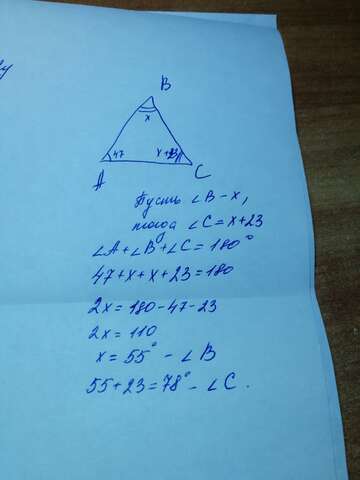 B
x
47
x+23
A
C
Пусть ∠B-x,
тогда ∠C=x+23
∠A+∠B+∠C=180°
47+x+x+23=180
2x=180-47-23
2x=110
x=55° - ∠B
55+23=78° - ∠C.